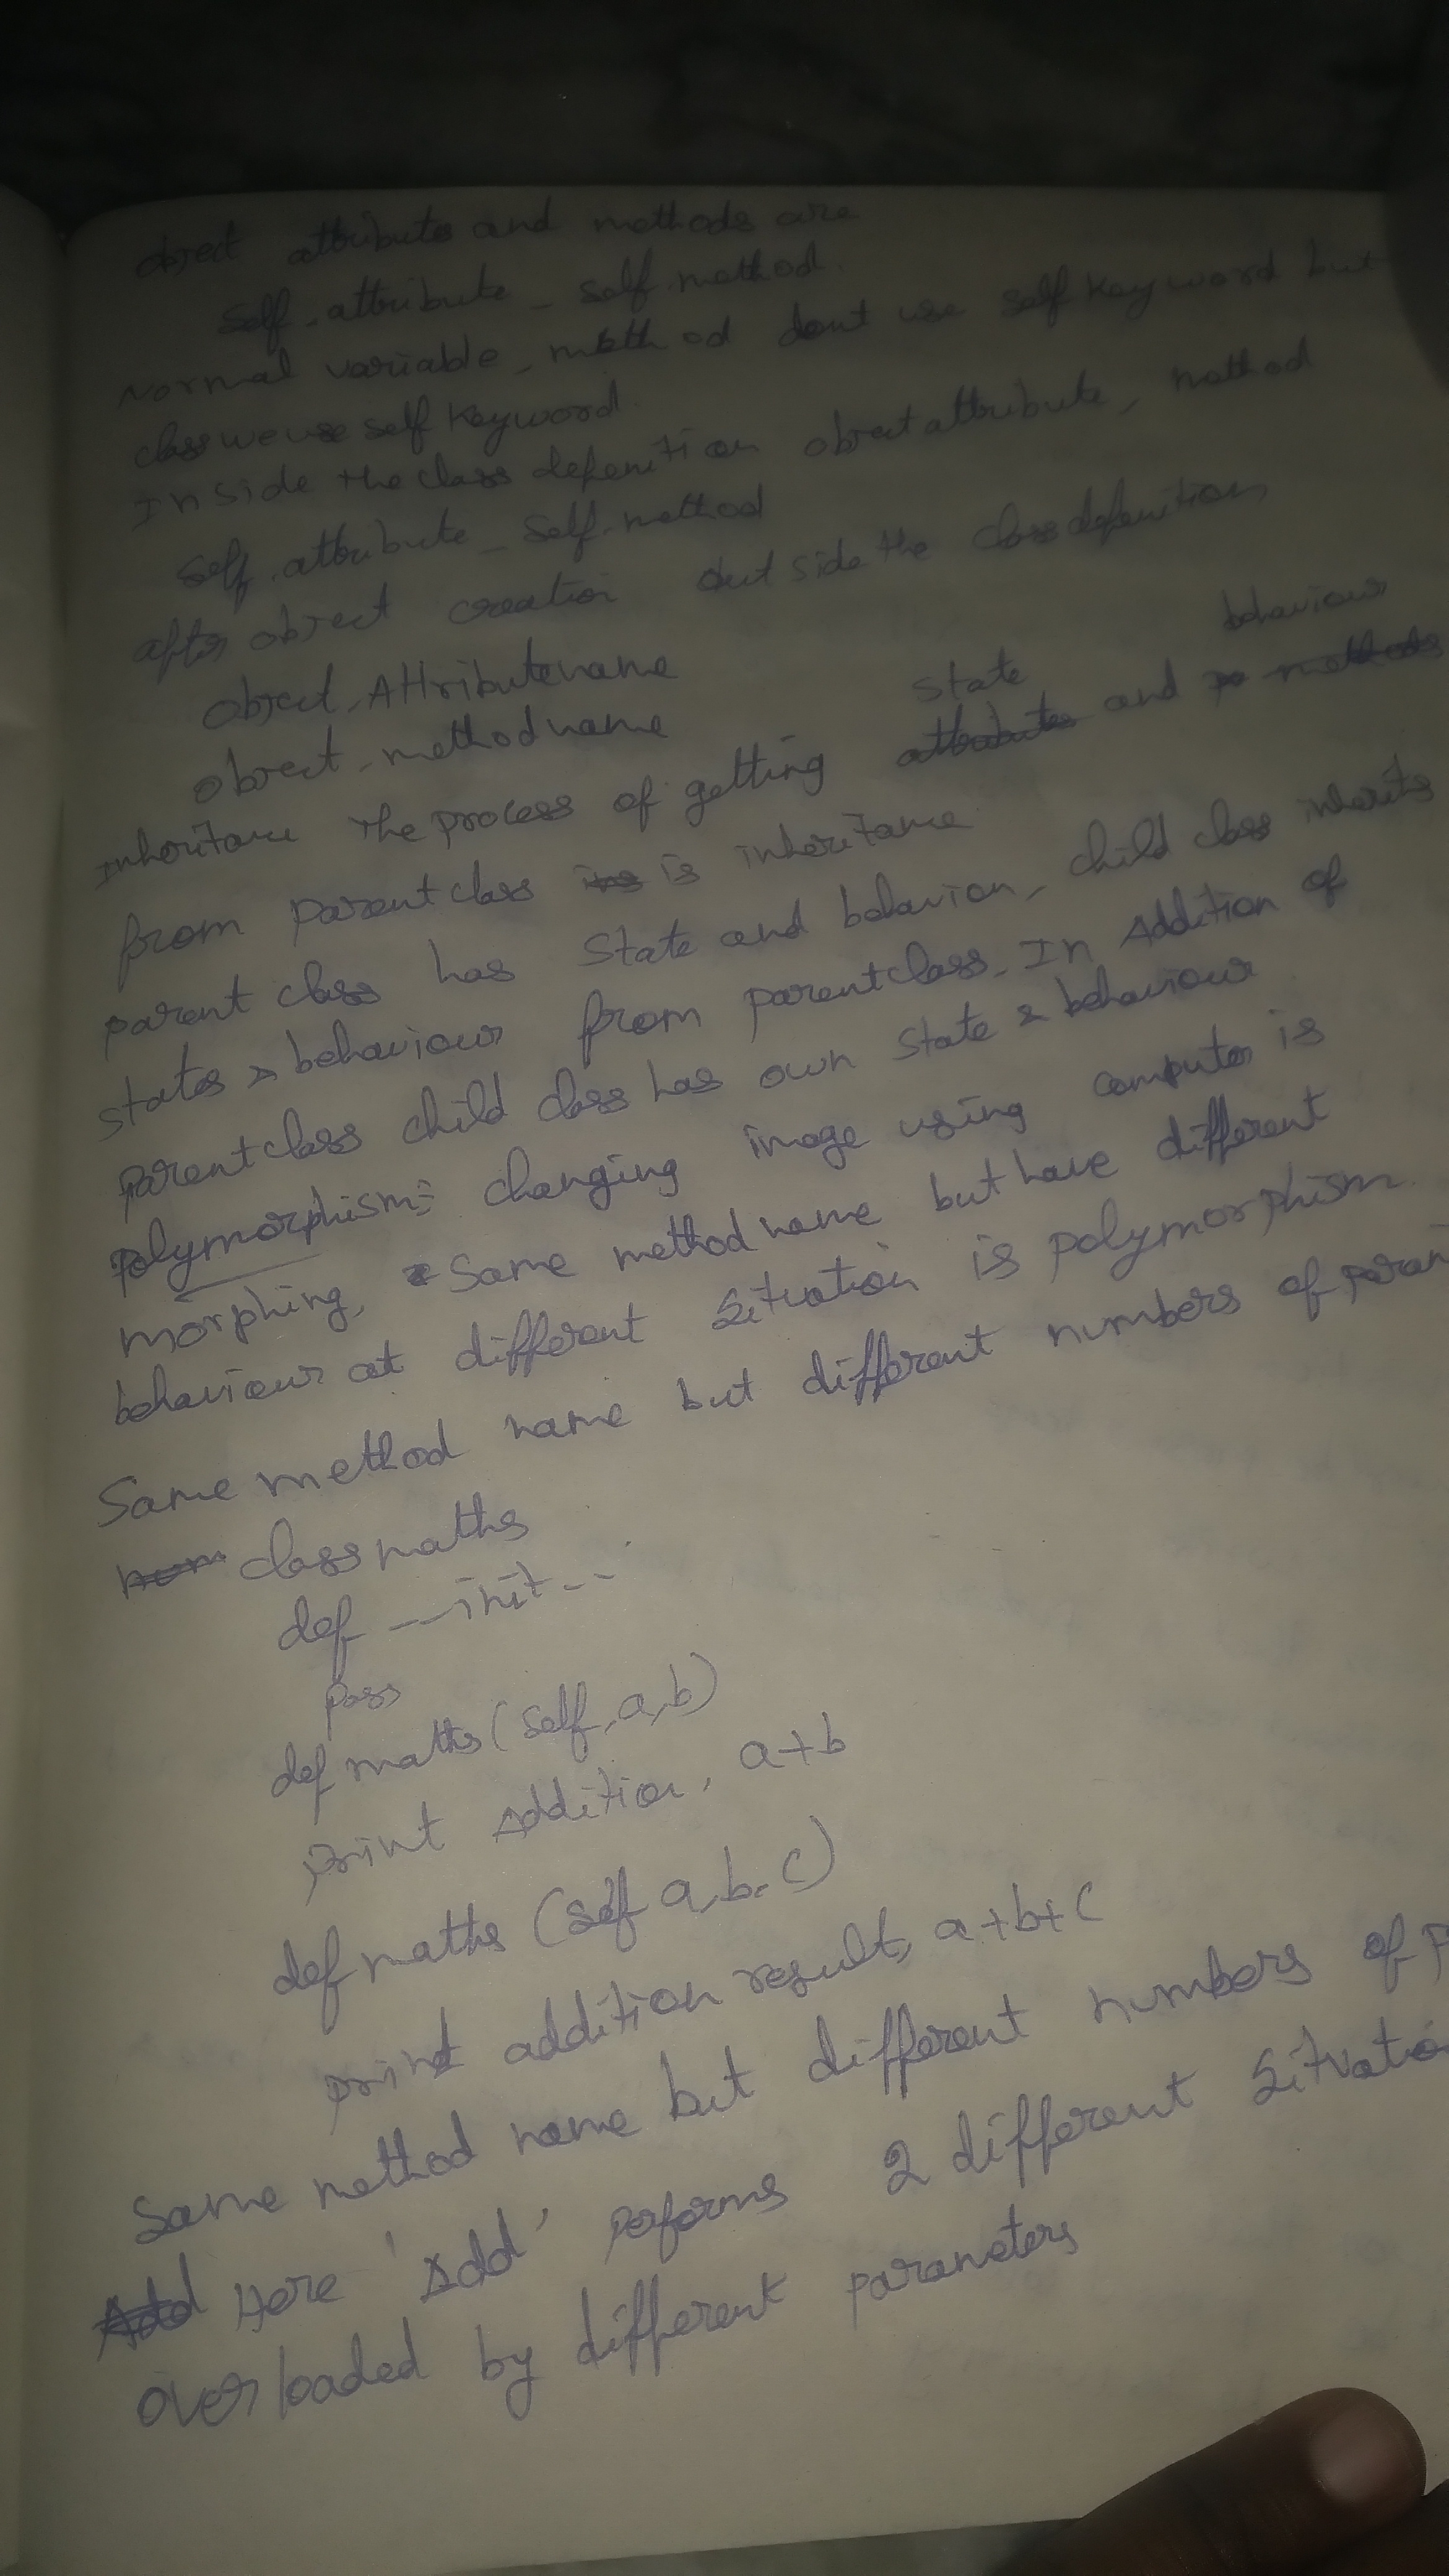 obrect attributes and methods are
self.attribute - self.method.
Normal variable, method dont use self keyword but
class we use self keyword.
Inside the class defenition obrect attribute, method
self.attribute - self.method
after obrect creation outside the class defenition,
Obrect.Attributename
obrect.methodname
behaviour
state
Inheritance the process of getting attributes and methods
from parent class is inheritance
parent class has state and behavior, child class inherits
states & behaviour from parentclass. In Addition of
parentclass child class has own state & behaviour
polymorphism:- changing image using computer is
morphing, Same method name but have different
behaviour at different situation is polymorphism.
Same method name but different numbers of param
class maths
def __init__
pass
def maths (self, a, b)
print Addition, a+b
def maths (self a, b, c)
print addition result, a+b+c
Same method name but different numbers of p
Add Here 'Add' performs 2 different situatio
overloaded by different parameters